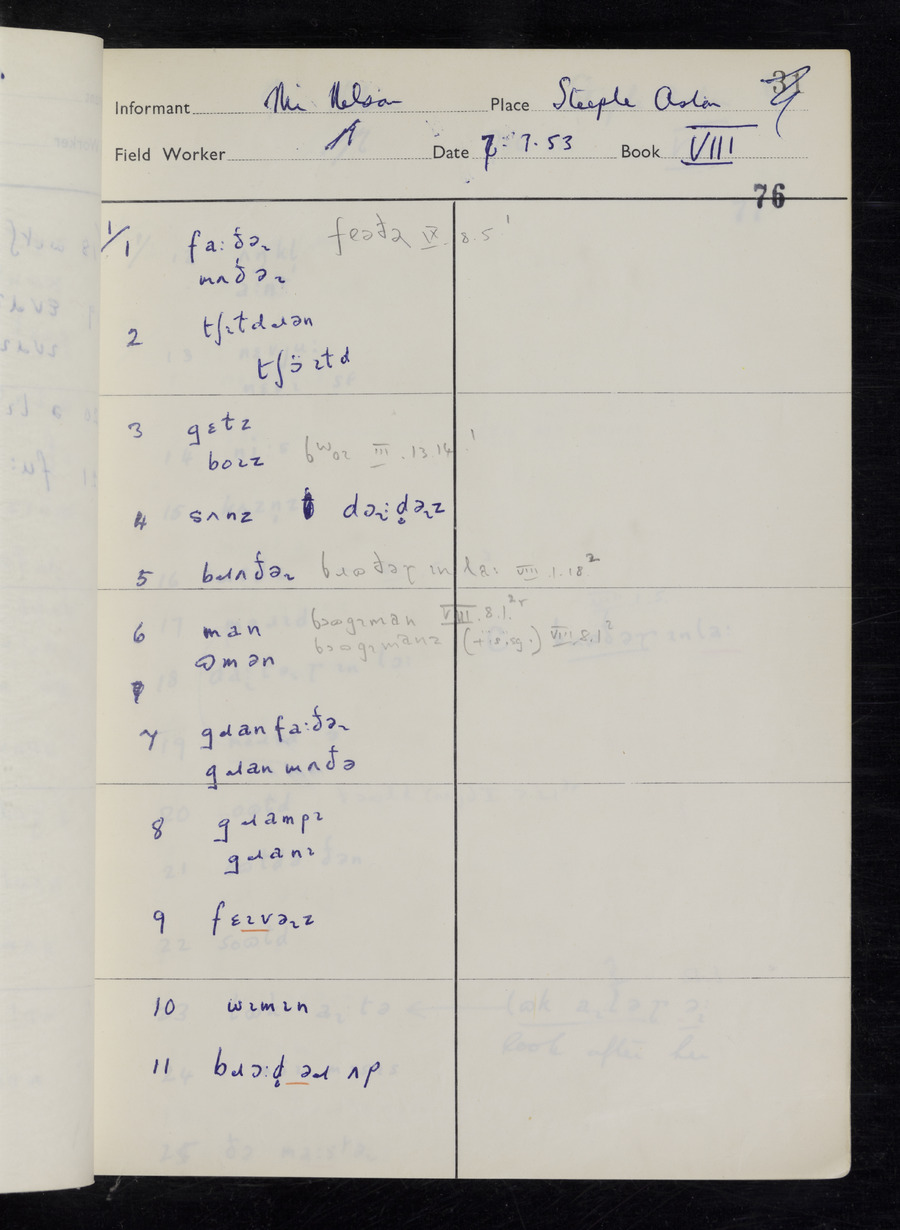 Informant Mr. Nelson Place Steeple Aston 31
Field Worker Date 7.7.53 Book VIII
76
1/1 fa:ðəɹ feəðə IX.8.5¹
mʌðəɹ
2 tʃɪɫdɹən
tʃɔ̈ɪɫd
3 gɛtz
bɔɪz bʷɔɪ III.13.14¹
4 sʌnz dɔ:dəɹz
5 bɹʌðəɹ VIII.1.18²
6 man VIII.8.1
ʊmən VIII.8.1²
7 gɹanfa:ðəɹ
gɹanmʌðə
8 gɹampɪ
gɹanɪ
9 fɛɪvəɹz
10 wɪmɪn
11 bɹɔ:d əɹ ʌp